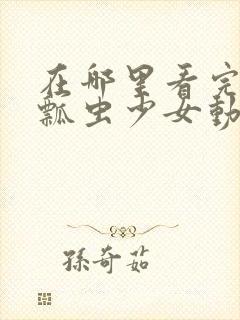 在哪里看完
瓢虫少女動
孫奇茹